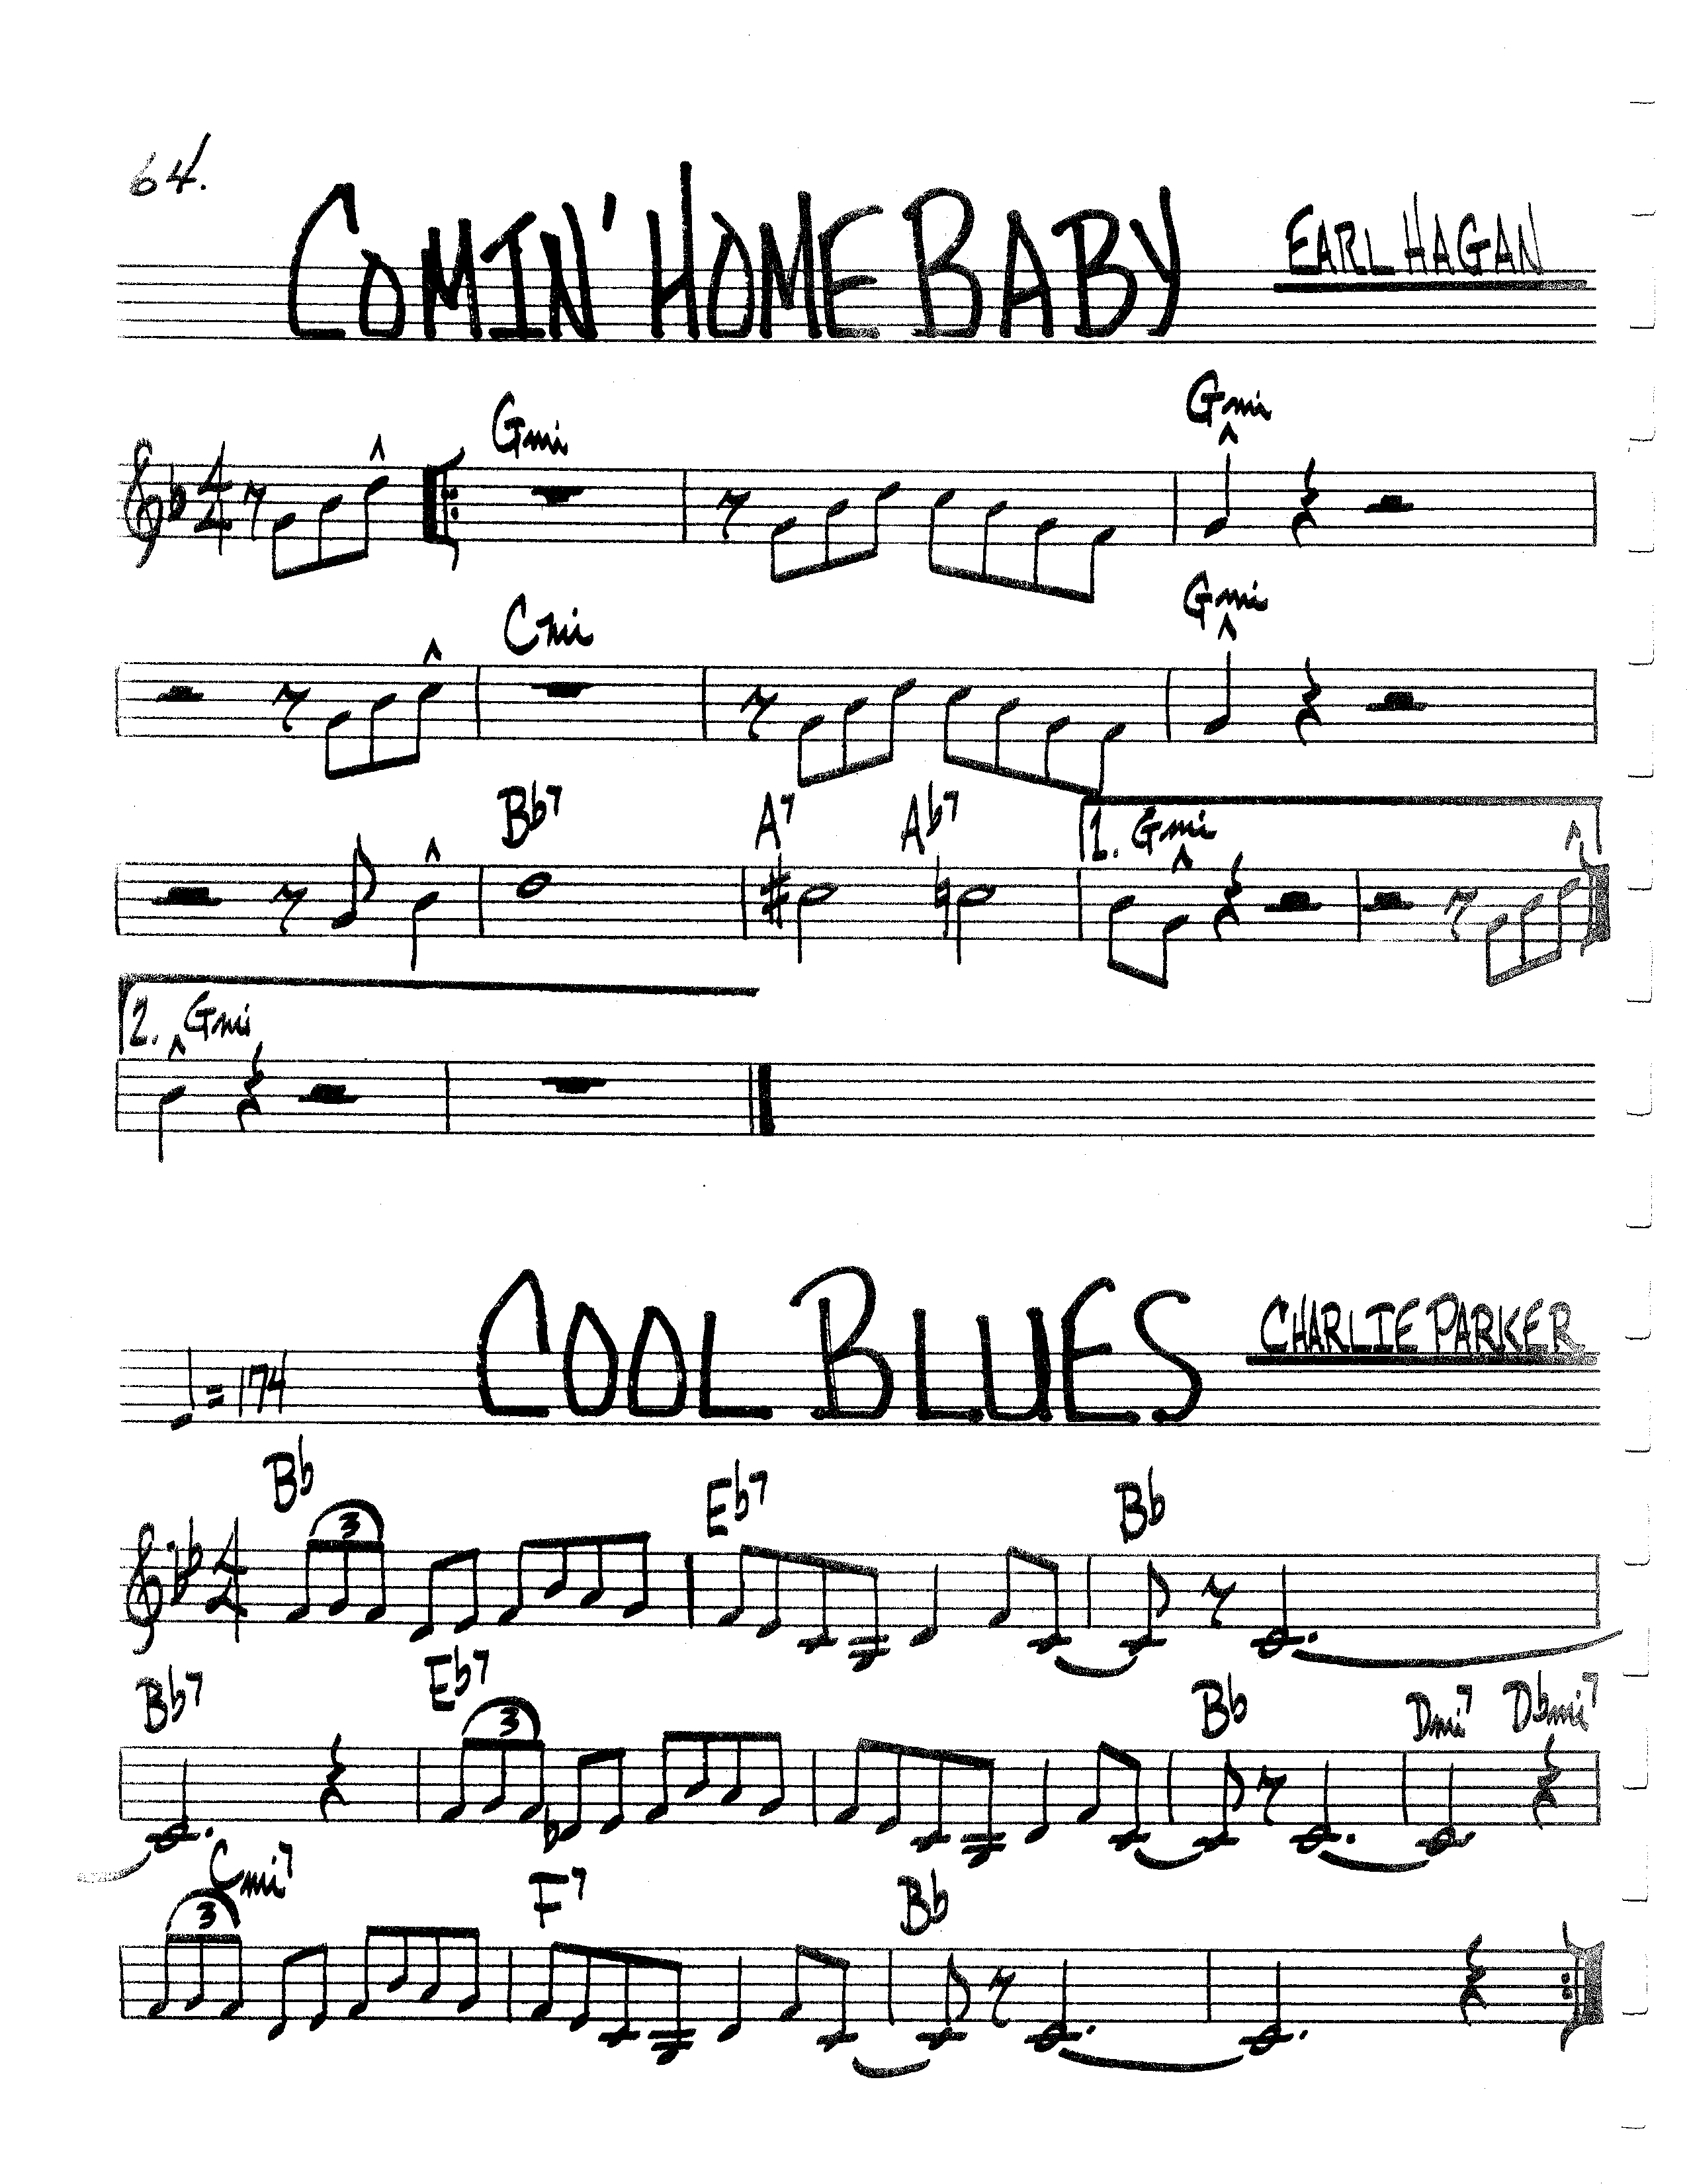 64.
COMIN' HOME BABY EARL HAGAN
Gmi Gmi
4/4
Cmi Gmi
Bb7 A7 Ab7 1. Gmi
2. Gmi
COOL BLUES CHARLIE PARKER
♩=174
Bb Eb7 Bb
3
4/4
Bb7 Eb7 Bb Dmi7 Dbmi7
3
Cmi7 F7 Bb
3